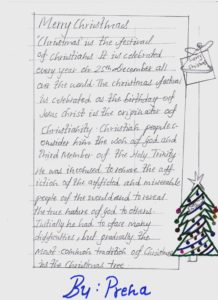 Merry Christmas
'Christmas' is the festival
of Christians. It is celebrated
every year on 25th December all
over the world. The christmas festival
is celebrated as the birthday of
Jesus Christ is the originator of
Christianity Christian people
consider him the son of god and
third Member of the Holy Trinity
He was the to relieve the aff
iction of the afflicted and miserable
people of the world and to reveal
the true nature of god to others.
Initially he had to face many
difficulties, but gradually the
Most common tradition of Christmas
is the Christmas tree
By: Preha